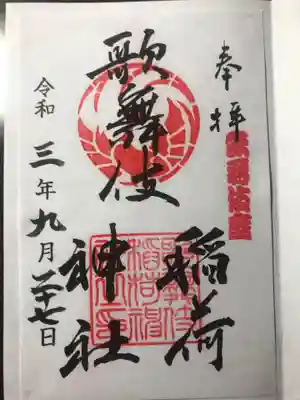 奉拝
歌舞伎座
歌舞伎
稲荷
神社
令和三年九月二十七日